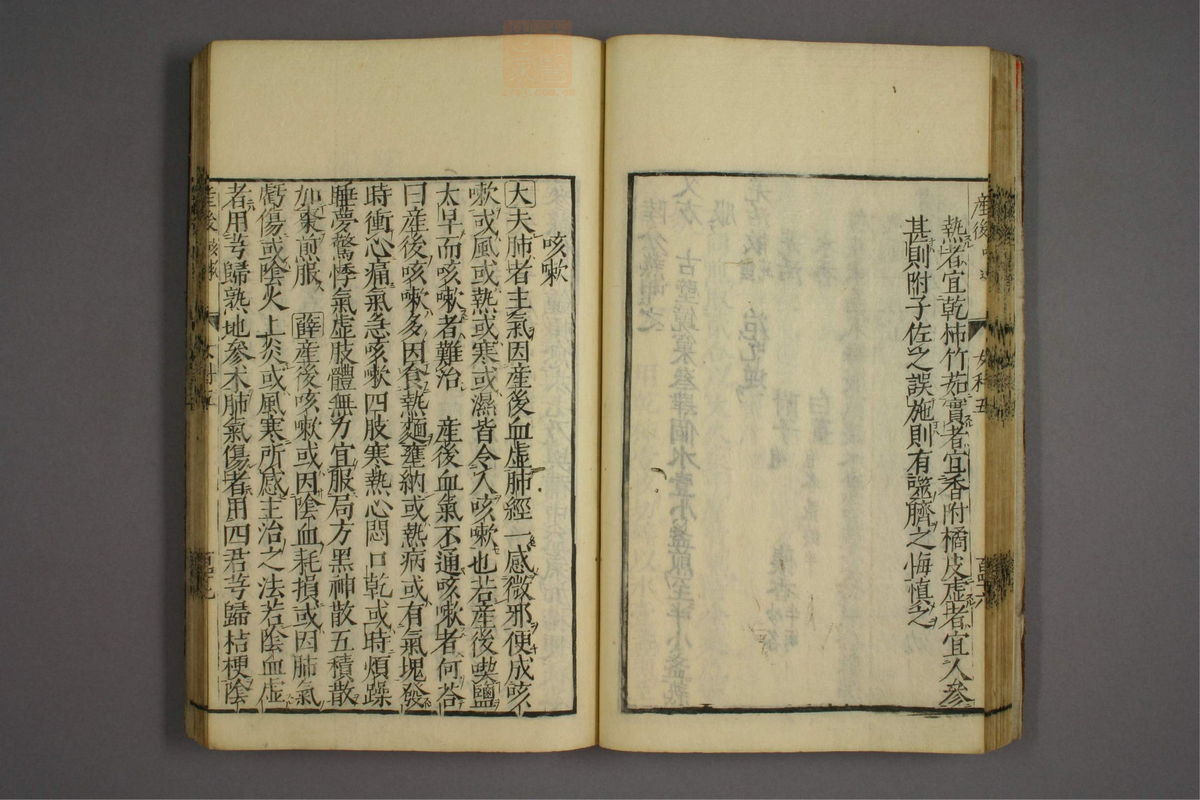 產後
女科五
熱者宜乾柿竹茹實者宜香附橘皮虛者宜人參
甚則附子佐之誤施則有噬臍之悔慎之
咳嗽
大夫肺者主氣因產後血虛肺經一感微邪便成咳
嗽或風或熱或寒或濕皆令人咳嗽也若產後喫鹽
太早而咳嗽者難治　產後血氣不通咳嗽者何答
曰產後咳嗽多因食熱麵壅納或熱病或有氣塊發
時衝心痛氣急咳嗽四肢寒熱心悶口乾或時煩躁
睡夢驚悸氣虛肢體無力宜服局方黑神散五積散
加棗煎服　薛產後咳嗽或因陰血耗損或因肺氣
虧傷或陰火上炎或風寒所感主治之法若陰血虛
者用芎歸熟地參朮肺氣傷者用四君芎歸桔梗陰
產後
咳嗽